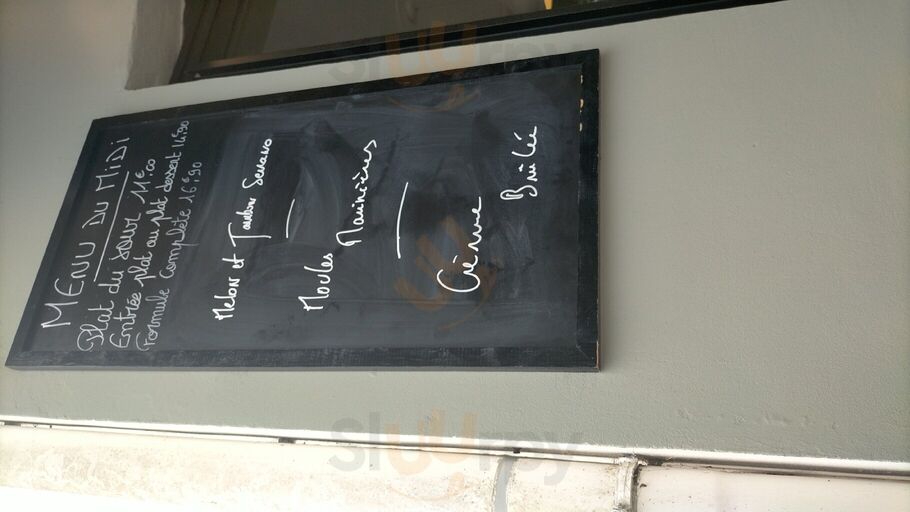 MENU DU MIDI
Plat du jour 11€00
Entrée plat ou plat dessert 14€90
Formule Complète 16€90
Melon et Jambon Serrano
Moules Marinières
Crème
Brulée
Sluurpy
Sluurpy
Sluurpy